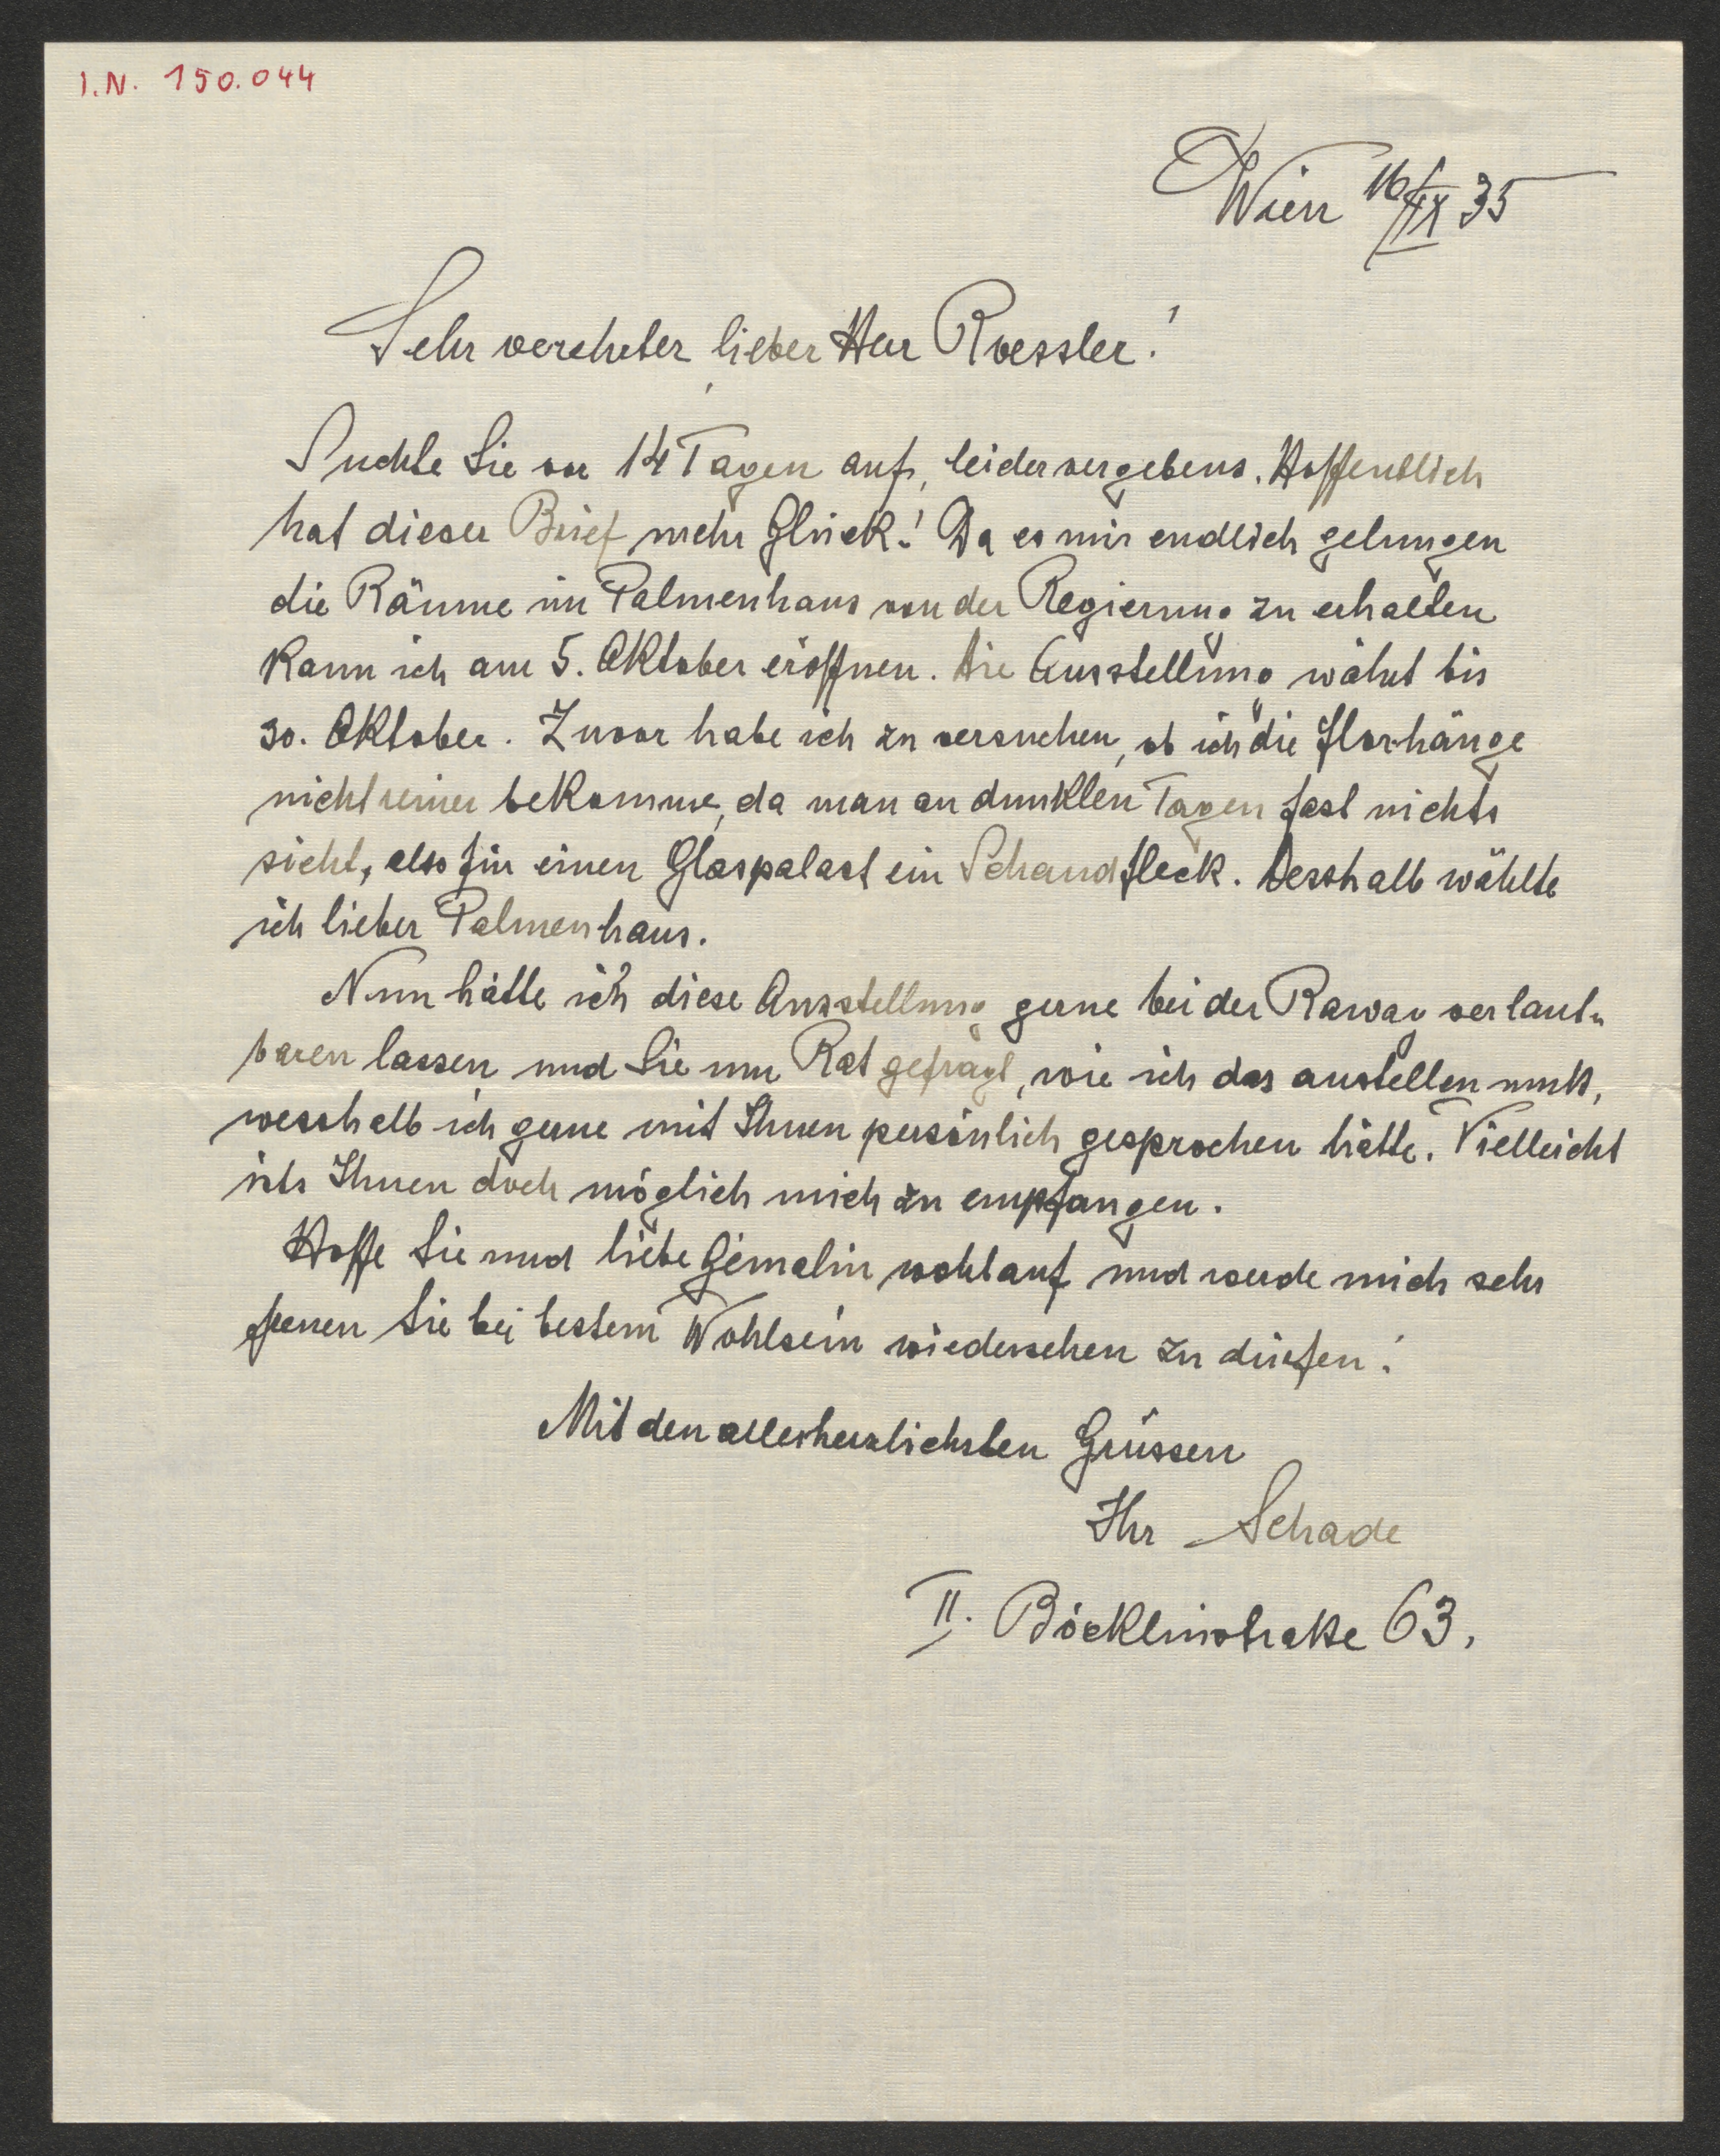 I.N. 150.044
Wien 16/IX 35
Sehr verehrter lieber Herr Roessler!
Suchte Sie vor 14 Tagen auf, leider vergebens. Hoffentlich
hat dieser Brief mehr Glück! Da es mir endlich gelungen
die Räume im Palmenhaus von der Regierung zu erhalten
kann ich am 5. Oktober eröffnen. Die Ausstellung währt bis
30. Oktober. Zuvor habe ich zu versuchen, ob ich die Florhänge
nicht reiner bekomme, da man an dunklen Tagen fast nichts
sieht, also für einen Glaspalast ein Schandfleck. Desshalb wählte
ich lieber Palmenhaus.
Nun hätte ich diese Ausstellung gerne bei der Rawag verlaut-
baren lassen und Sie um Rat gefragt, wie ich das anstellen muß,
wesshalb ich gerne mit Ihnen persönlich gesprochen hätte. Vielleicht
ists Ihnen doch möglich mich zu empfangen.
Hoffe Sie und liebe Gemalin wohlauf und werde mich sehr
freuen Sie bei bestem Wohlsein wiedersehen zu dürfen!
Mit den allerherzlichsten Grüssen
Ihr Schade
II. Böcklinstraße 63.